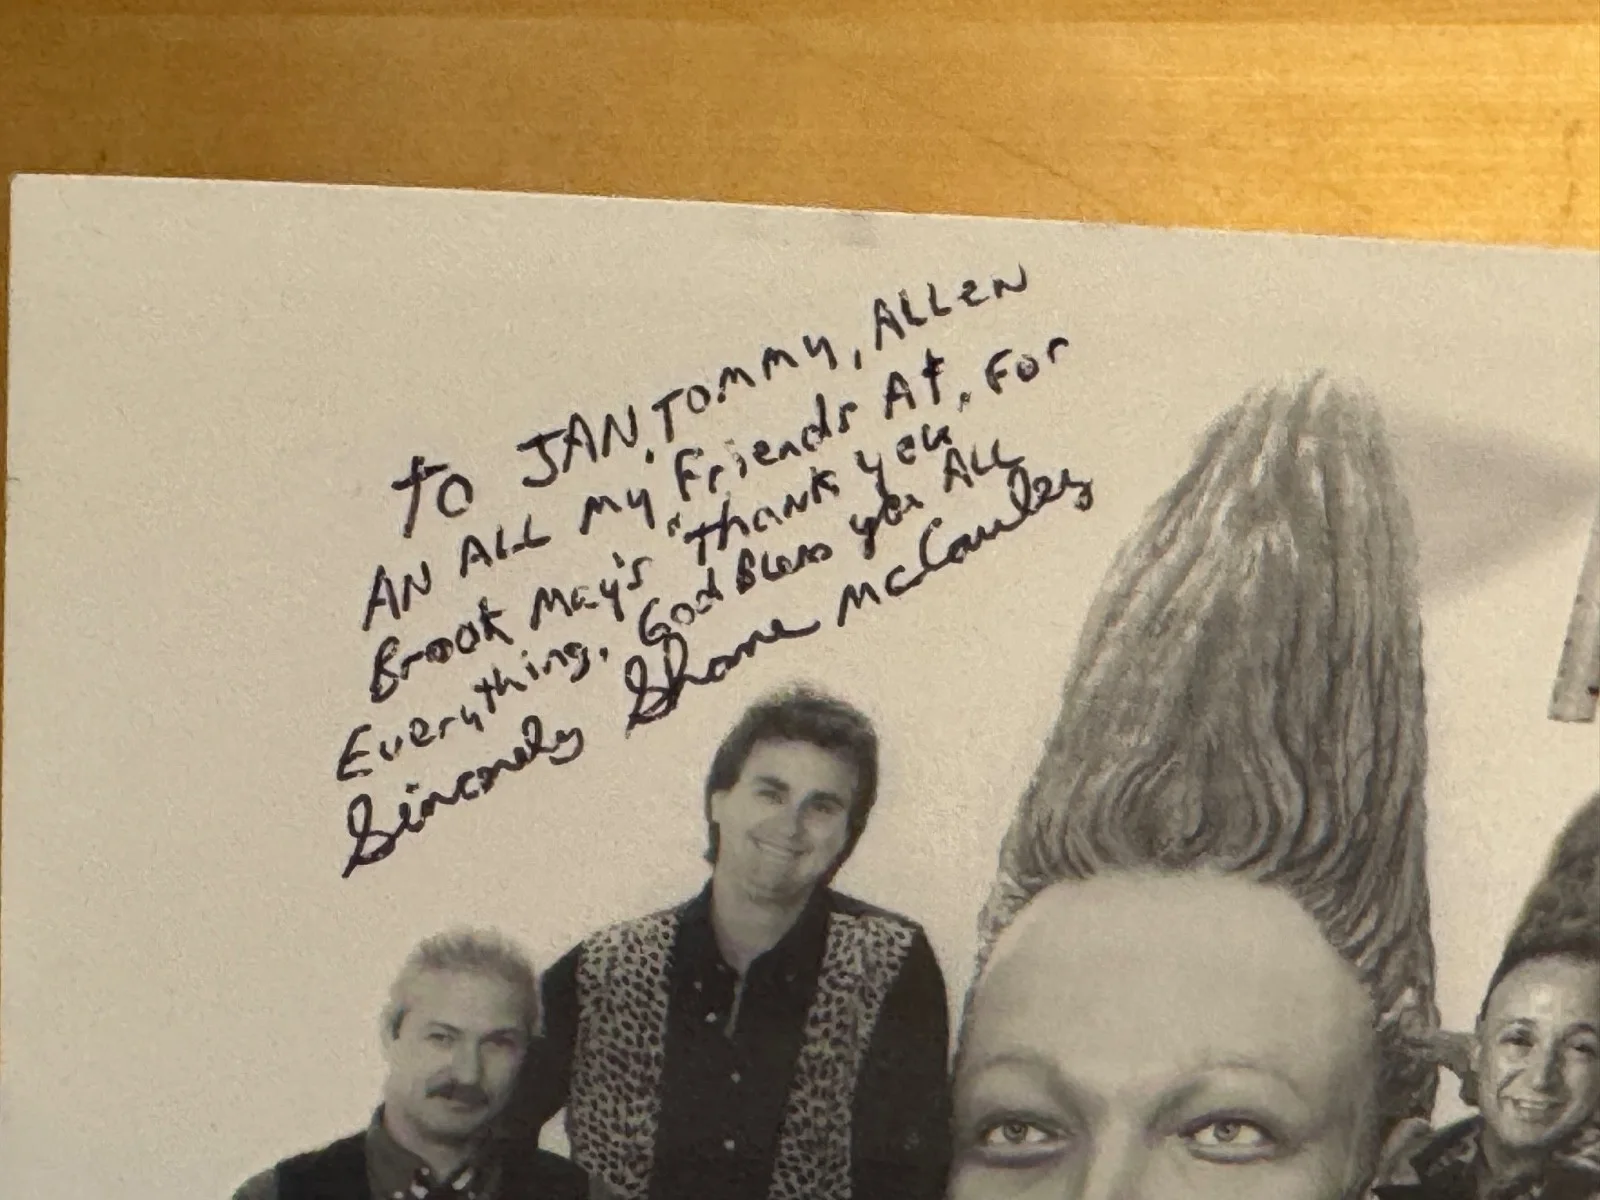 To JAN, Tommy, ALLEN
AN ALL my Friends At,
Brook May's "Thank you For
Everything. God Bless you ALL
Sincerely Shane McCauley